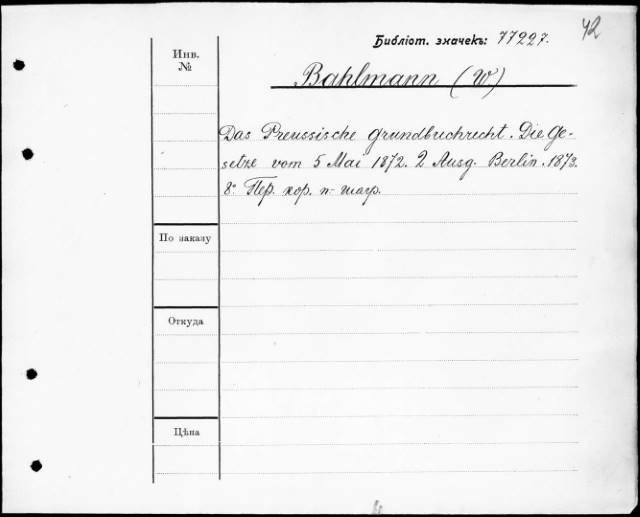 42
Библіот. значекъ: 77227.
Инв.
№
Bahlmann (W)
Das Preussische Grundbuchrecht. Die Ge-
setze vom 5 Mai 1872. 2 Ausg. Berlin. 1873.
8° Пер. кор. п-шагр.
По заказу
Откуда
Цѣна